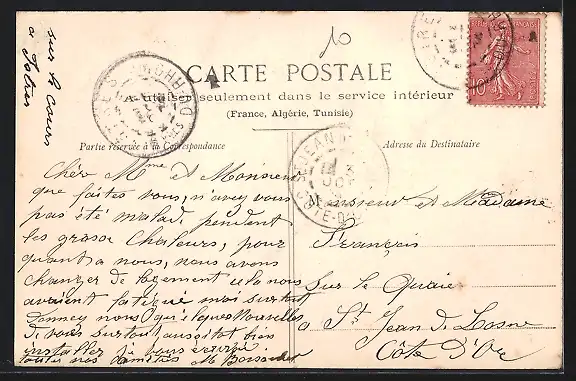 10
CARTE POSTALE
A utiliser seulement dans le service intérieur
(France, Algérie, Tunisie)
Partie réservée à la Correspondance
Adresse du Destinataire
sur le cours
a
Chèr Mme et Monsieur
que faites vous, n'avez vous
pas été malade pendent
les grosse Chaleurs, pour
quant a nous, nous avons
changer de logement cela nous
avaient fatigué moi surtout
Donnez nous quelques nouvelles
de vous surtout, aussitot bien
installer je vous ecrirè
toute nos amitiés M
Monsieur et Madame
François
Sur le Quaie
a St Jean de Losne
Côte D'Or
10